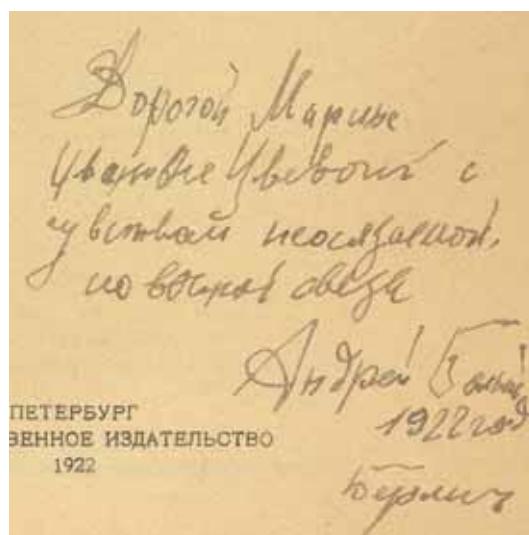 Дорогой Марине
Ивановне Цветаевой с
чувством неосязаемой,
но вечной связи
Андрей Белый
1922 год
Берлин
ПЕТЕРБУРГ
ВЕННОЕ ИЗДАТЕЛЬСТВО
1922